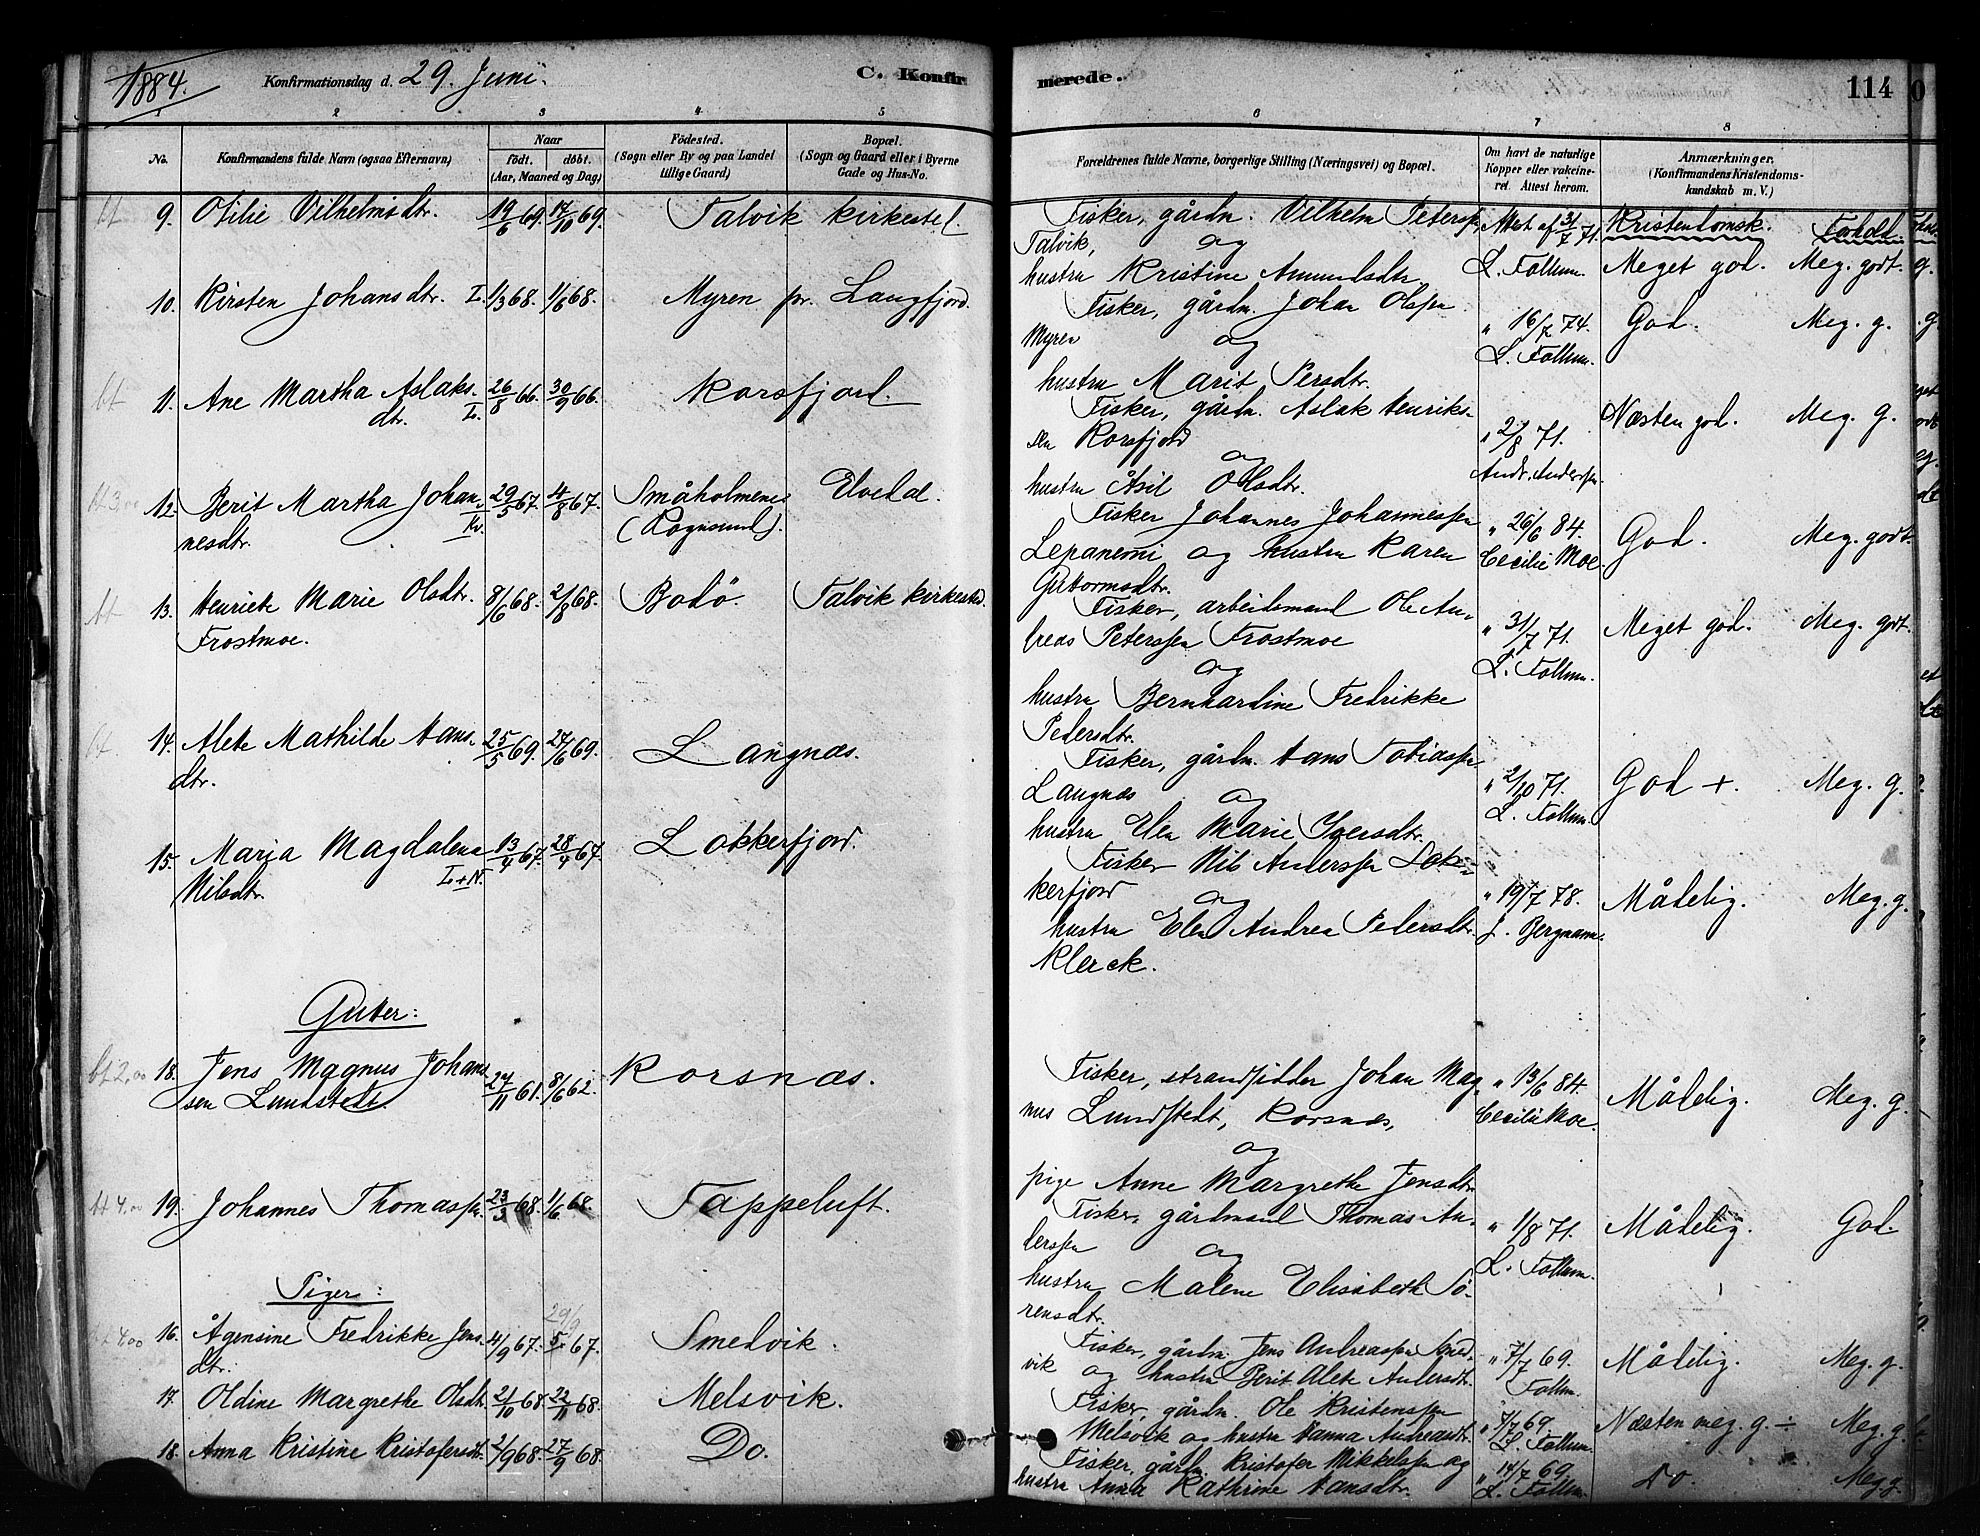 1884.
Konfirmationsdag d. 29. Juni.
C. Konfirmerede.
114
1 2 3 4 5 6 7 8
No.
Konfirmandens fulde Navn (ogsaa Efternavn)
Naar
født. døbt.
(Aar, Maaned og Dag)
Födested.
(Sogn eller By og paa Landet
tillige Gaard)
Bopæl.
(Sogn og Gaard eller i Byerne
Gade og Hus-No.
Forældrenes fulde Navne, borgerlige Stilling (Næringsvei) og Bopæl.
Om havt de naturlige
Kopper eller vakcine-
ret. Attest herom.
Anmærkninger.
(Konfirmandens Kristendoms-
kundskab m. V.)
Kristendomsk. Forhold.
bt 9. Otilie Vilhelmsdtr. 19/6 69. 17/10 69. Talvik kirkested.
Fisker, gårdm. Vilhelm Peterssen
Talvik, og
hustru Kristine Amundsdtr.
Attest af 31/7 71.
L. Follum.
Meget god. Meg. godt.
10. Kirsten Johansdtr. L. 1/3 68. 1/6 68. Myren pr. Langfjord.
Fisker, gårdm. Johan Olssen
Myren og
hustru Marit Persdtr.
" 16/7 74.
L. Follum.
God. Meg. g.
bt 11. Ane Martha Aslaks-
dtr. L. 26/8 66. 30/9 66. Korsfjord.
Fisker, gårdm. Aslak Henriks-
sen Korsfjord
og
hustru Åsil Olsdtr.
" 2/8 71.
Andr. Anderssen.
Næsten god. Meg. g.
bt 3,00 12. Berit Martha Johan-
nesdtr. Kv. 29/5 67. 4/8 67. Småholmene
(Rognsund). Elvedal.
Fisker Johannes Johannessen
Lepanemi og hustru Karen
Guttormsdtr.
" 26/6 84.
Cecilie Moe.
God. Meg. godt.
bt 13. Henriete Marie Olsdtr.
Frostmoe. 8/6 68. 2/8 68. Bodö. Talvik kirkested.
Fisker, arbeidsmand Ole An-
dreas Peterssen Frostmoe
og
hustru Bernhardine Fredrikke
Pedersdtr.
" 31/7 71.
L. Follum.
Meget god. Meg. godt.
bt. 14. Alete Mathilde Hans-
dtr. 25/5 69. 27/6 69. Langnæs.
Fisker, gårdm. Hans Tobiassen
Langnæs og
hustru Elen Marie Iversdtr.
" 2/10 71.
L. Follum.
God +. Meg. g.
15. Marja Magdalena
Nilsdtr. L+N. 13/4 67. 28/4 67. Lokkerfjord.
Fisker Nils Anderssen Lok-
kerfjord og
hustru Elen Andrea Pedersdtr.
Klerck.
" 19/7 78.
J. Bergmann.
Mådelig. Meg. g.
Gutter:
bt 2,00 18. Jens Magnus Johans-
sen Lundstedt. 27/11 61. 8/6 62. Korsnæs.
Fisker, strandsidder Johan Mag-
nus Lundstedt, Korsnæs,
og
pige Anne Margrethe Jensdtr.
" 13/6 84.
Cecilie Moe.
Mådelig. Meg. g.
bt 4,00 19. Johannes Thomassen. 23/3 68. 1/6 68. Tappeluft.
Fisker, gårdmand Thomas An-
derssen og
hustru Malene Elisabeth Sö-
rensdtr.
" 1/8 71.
L. Follum.
Mådelig. God.
Piger:
29/9
bt 4.00 16. Ågensine Fredrikke Jens-
dtr. 4/9 67. 5/ 67. Smedvik.
Fisker, gårdm. Jens Andreassen Smed-
vik og hustru Berit Alete Andersdtr.
" 7/7 69.
Follum.
Mådelig. Meg. g.
17. Oldine Margrethe Olsdtr. 21/10 68. 22/11 68. Melsvik.
Fisker, gårdm. Ole Kristenssen
Melsvik og hustru Hanna Andreasdtr.
" 7/7 69.
L. Follum.
Næsten meg. g. ÷ Meg. g.
18. Anna Kristine Kristofersdtr. 2/9 68. 27/9 68. Do.
Fisker, gårdm. Kristofer Mikkelssen og
hustru Anna Kathrine Hansdtr.
" 14/7 69.
L. Follum.
Do. Meg. g.